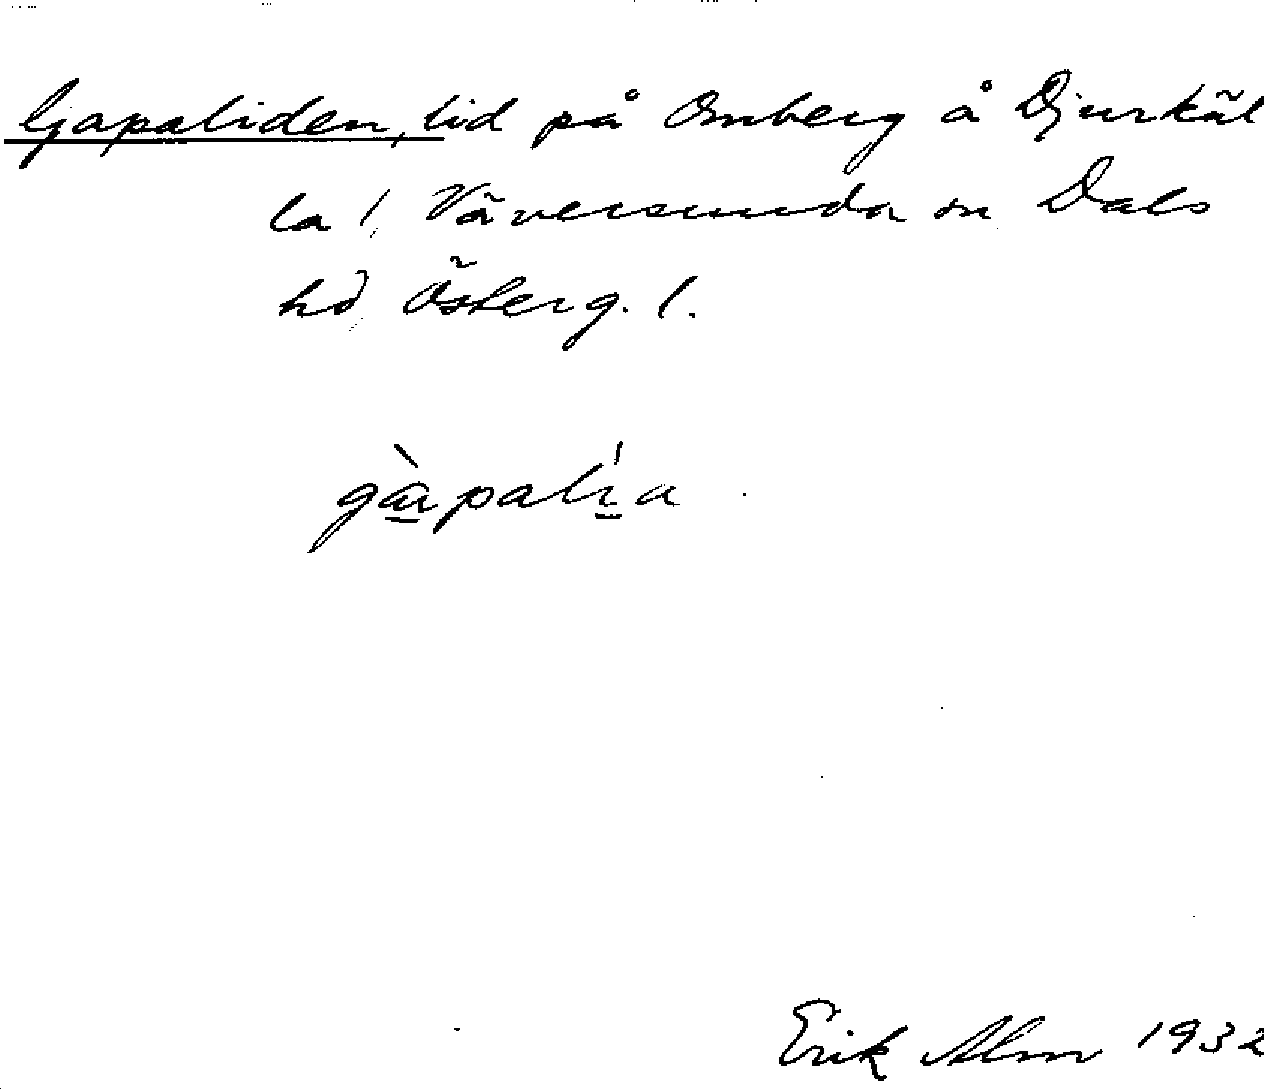 Gapaliden, lid på Omberg å Djurkäl
la /, Väversunda sn Dals
hd Österg. l.
gàrpalía
Erik Alm 1932